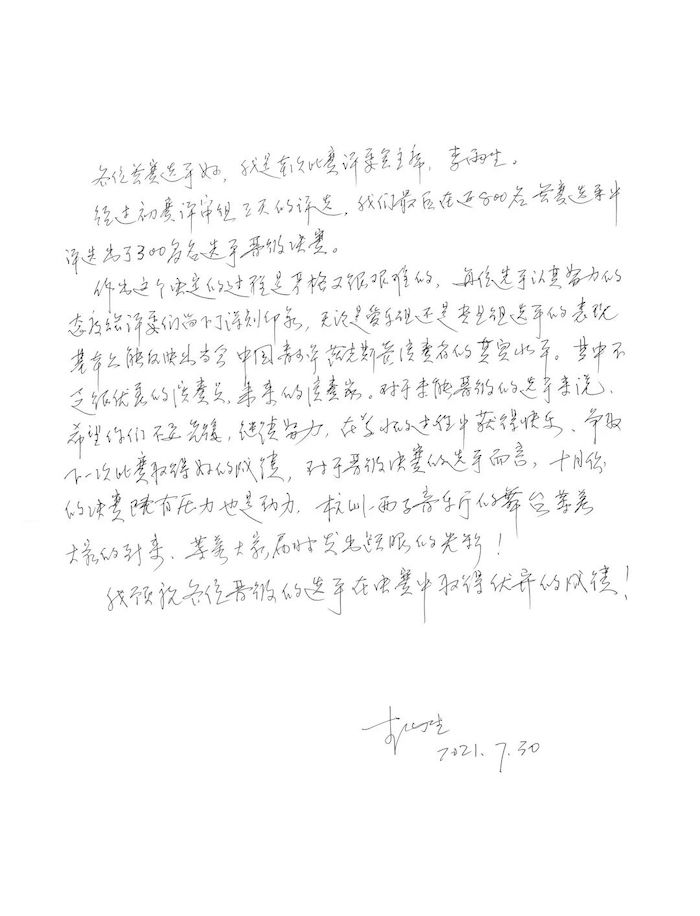 各位参赛选手好，我是本次比赛评委会主席，李雨生。
经过初赛评审组三天的评选，我们最后在近800名参赛选手中
评选出了300多名选手晋级决赛。
作出这个决定的过程是严格又很艰难的，每位选手认真努力的
态度给评委们留下了深刻印象，无论是爱乐组还是专业组选手的表现
基本上能反映出当今中国青少年萨克斯管演奏者的真实水平。其中不
乏很优秀的演奏员、未来的演奏家。对于未能晋级的选手来说，
希望你们不要气馁，继续努力，在学习的过程中获得快乐、争取
下一次比赛取得好的成绩，对于晋级决赛的选手而言，十月份
的决赛既有压力也是动力，杭州·西子音乐厅的舞台等着
大家的到来、等着大家届时发出耀眼的光彩！
我预祝各位晋级的选手在决赛中取得优异的成绩！
李雨生
2021.7.30